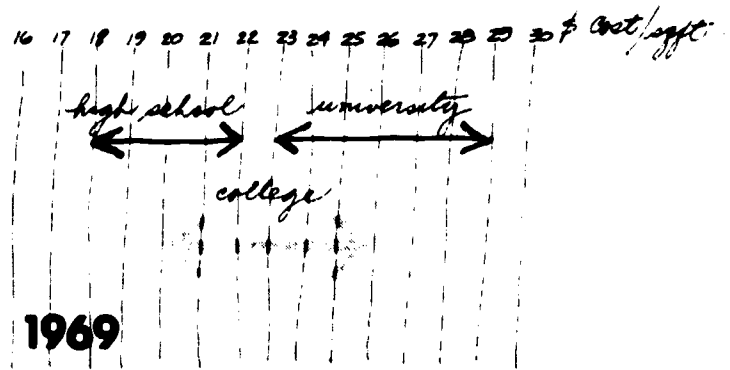 16 17 18 19 20 21 22 23 24 25 26 27 28 29 30 $ Cost/sqft.
high school university
college
1969